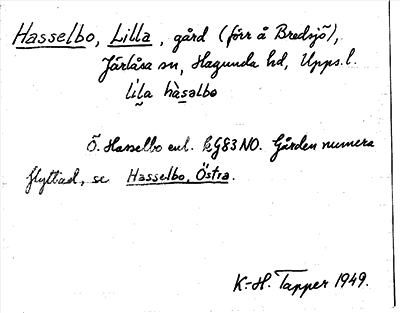 Hasselbo, Lilla, gård (förr å Bredsjö),
Järlåsa sn, Hagunda hd, Upps. l.
li̇̀la hàsalbo
Ö. Hasselbo enl. kG83NO. Gården numera
flyttad, se Hasselbo, Östra.
K.-H. Tapper 1949.